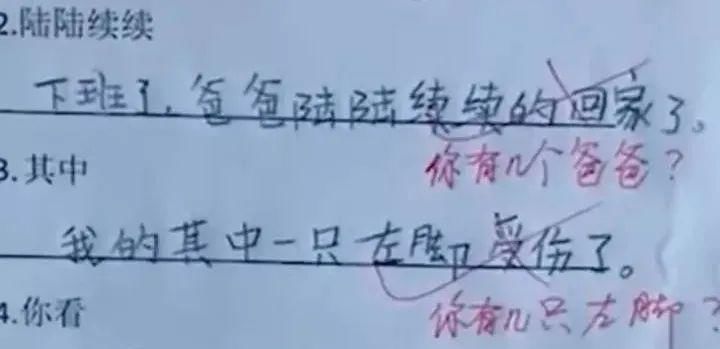 2.陆陆续续
下班了,爸爸陆陆续续的回家了。
你有几个爸爸?
3.其中
我的其中一只左脚受伤了。
你有几只左脚?
4.你看